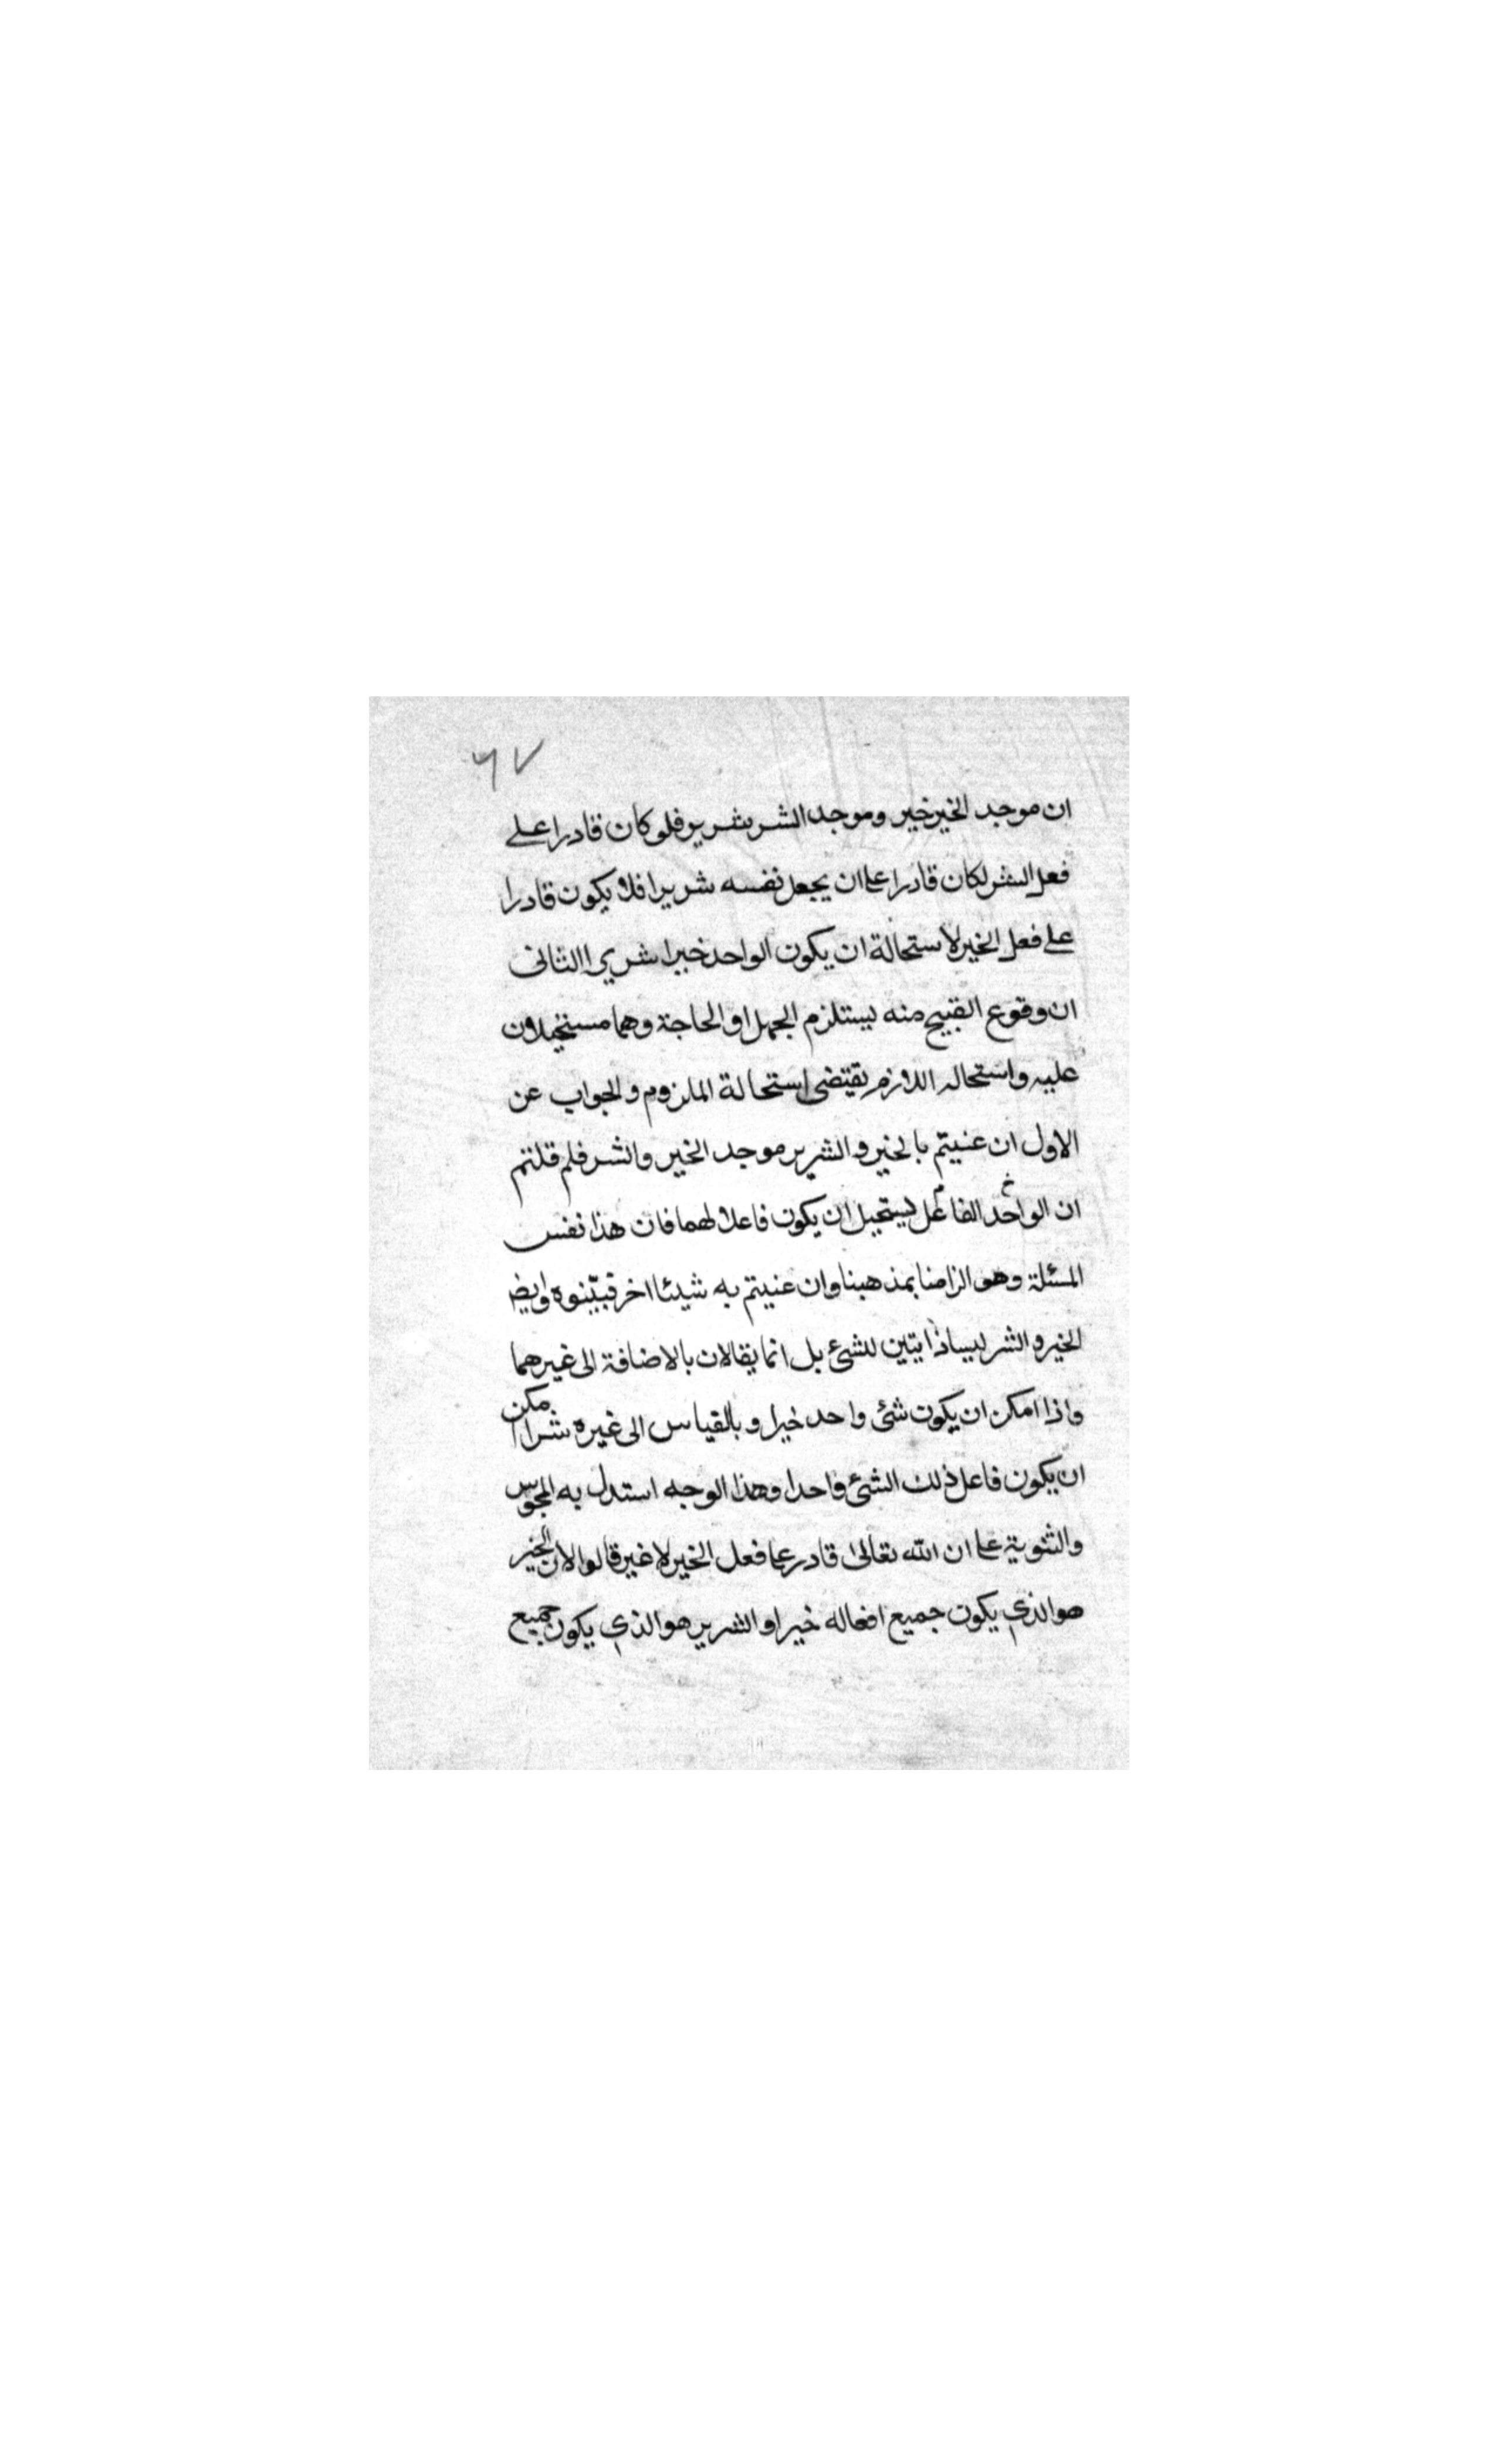 ۶۷
ان موجد الخير خير وموجد الشر شرير فلو كان قادرا على
فعل الشر لكان قادرا على ان يجعل نفسه شريرا فلا يكون قادرا
على فعل الخير لاستحالة ان يكون الواحد خيرا شريرا الثانى
ان وقوع القبيح منه يستلزم الجهل او الحاجة وهما مستحيلان
عليه واستحاله اللازم يقتضى استحالة الملزوم والجواب عن
الاول ان عنيتم بالخير والشرير موجد الخير والشر فلم قلتم
ان الواحد الفاعل يستحيل ان يكون فاعلا لهما فان هذا نفس
المسئلة وهو الزامنا بمذهبنا وان عنيتم به شيئا اخر فبيّنوه وايض
الخير والشر ليسا ذاتيين للشئ بل انما يقالان بالاضافة الى غيرهما
واذا امكن ان يكون شئ واحد خيرا وبالقياس الى غيره شرا امكن
ان يكون فاعل ذلك الشئ واحدا وهذا الوجه استدل به المجوس
والثنوية على ان الله تعالى قادر على فعل الخير لا غير قالوا لان الخير
هو الذي يكون جميع افعاله خيرا والشرير هو الذي يكون جميع